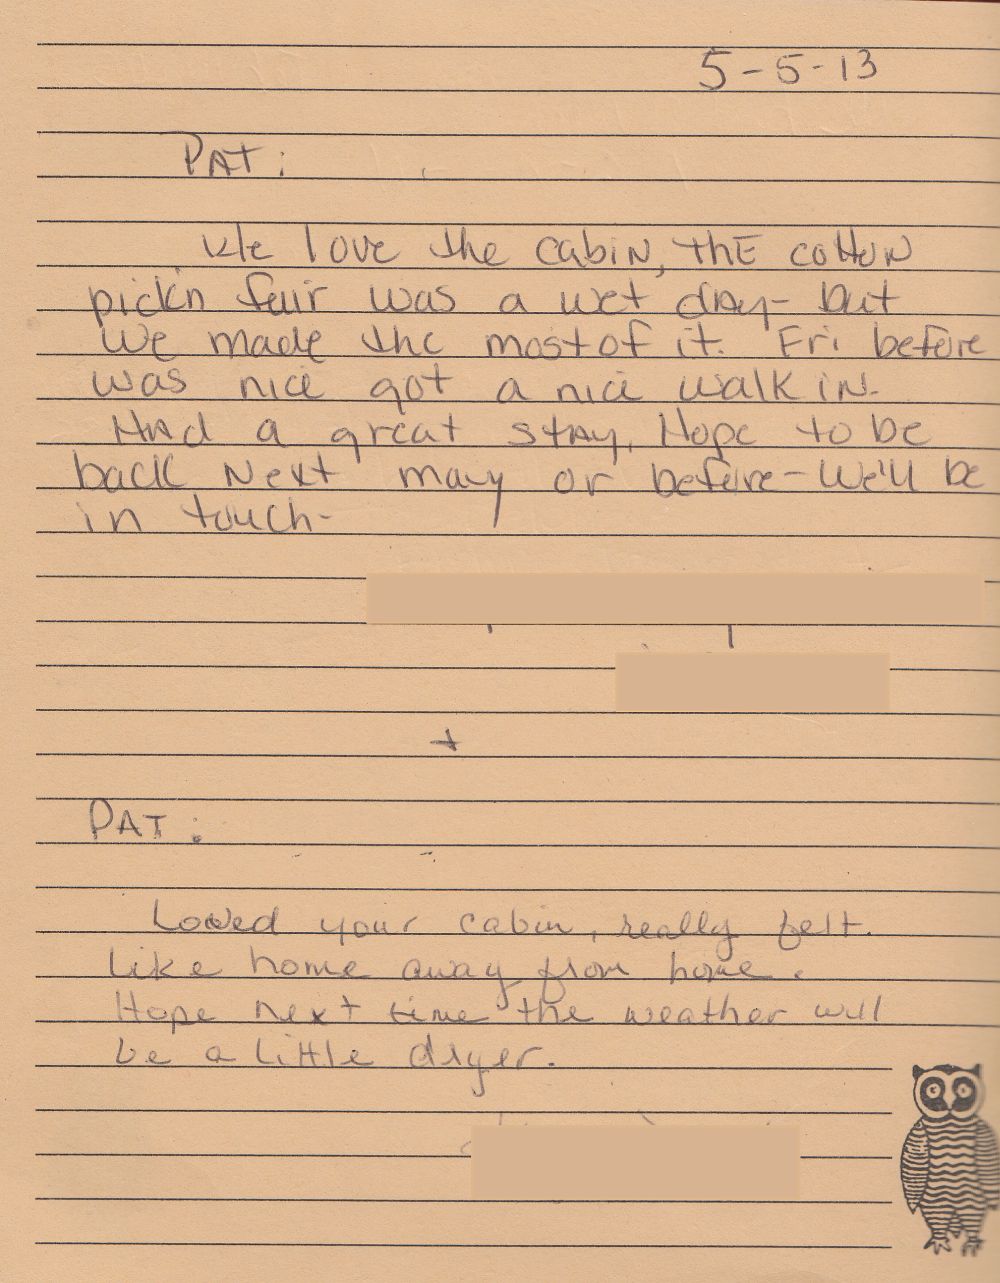 5-5-13
PAT:
We love the cabiN, thE cottoN
pick'n fair was a wet dAy- but
We made the most of it. Fri before
was nice got a nice walk iN-
HAd a great stAy, Hope to be
back Next may or before- We'll be
in touch-
+
PAT:
Loved your cabin, really felt
Like home away from home.
Hope next time the weather will
be a little dryer.